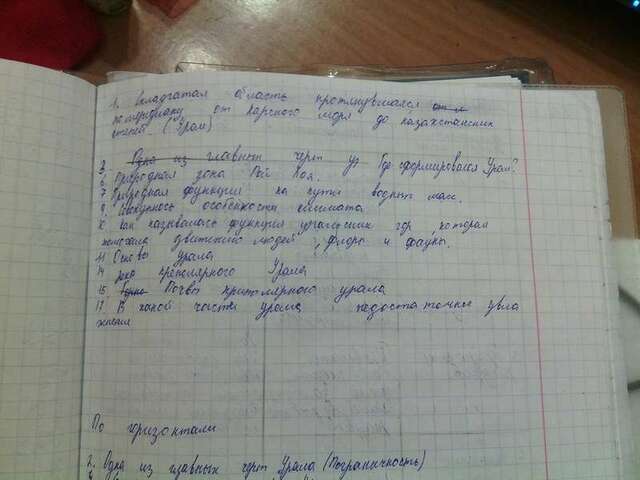 1. складчатая область протянувшаяся
по меридиану от карского моря до казахстанских
степей (Урал)
3. Одна из главных черт ур Где сформировался Урал?
6. Природная зона Пай Хоя.
7 Природная функция на пути водных масс.
9. Совокупность особенности климата
10. Как называлась функция уральских гор, которая
помогала движению людей, флоры и фауны.
11 Основы урала
14 река приполярного Урала
15 Почвы приполярного урала
17 В какой части урала недостаточное увла
жнения
По горизонтали
2. Одна из главных черт Урала (Пограничность)